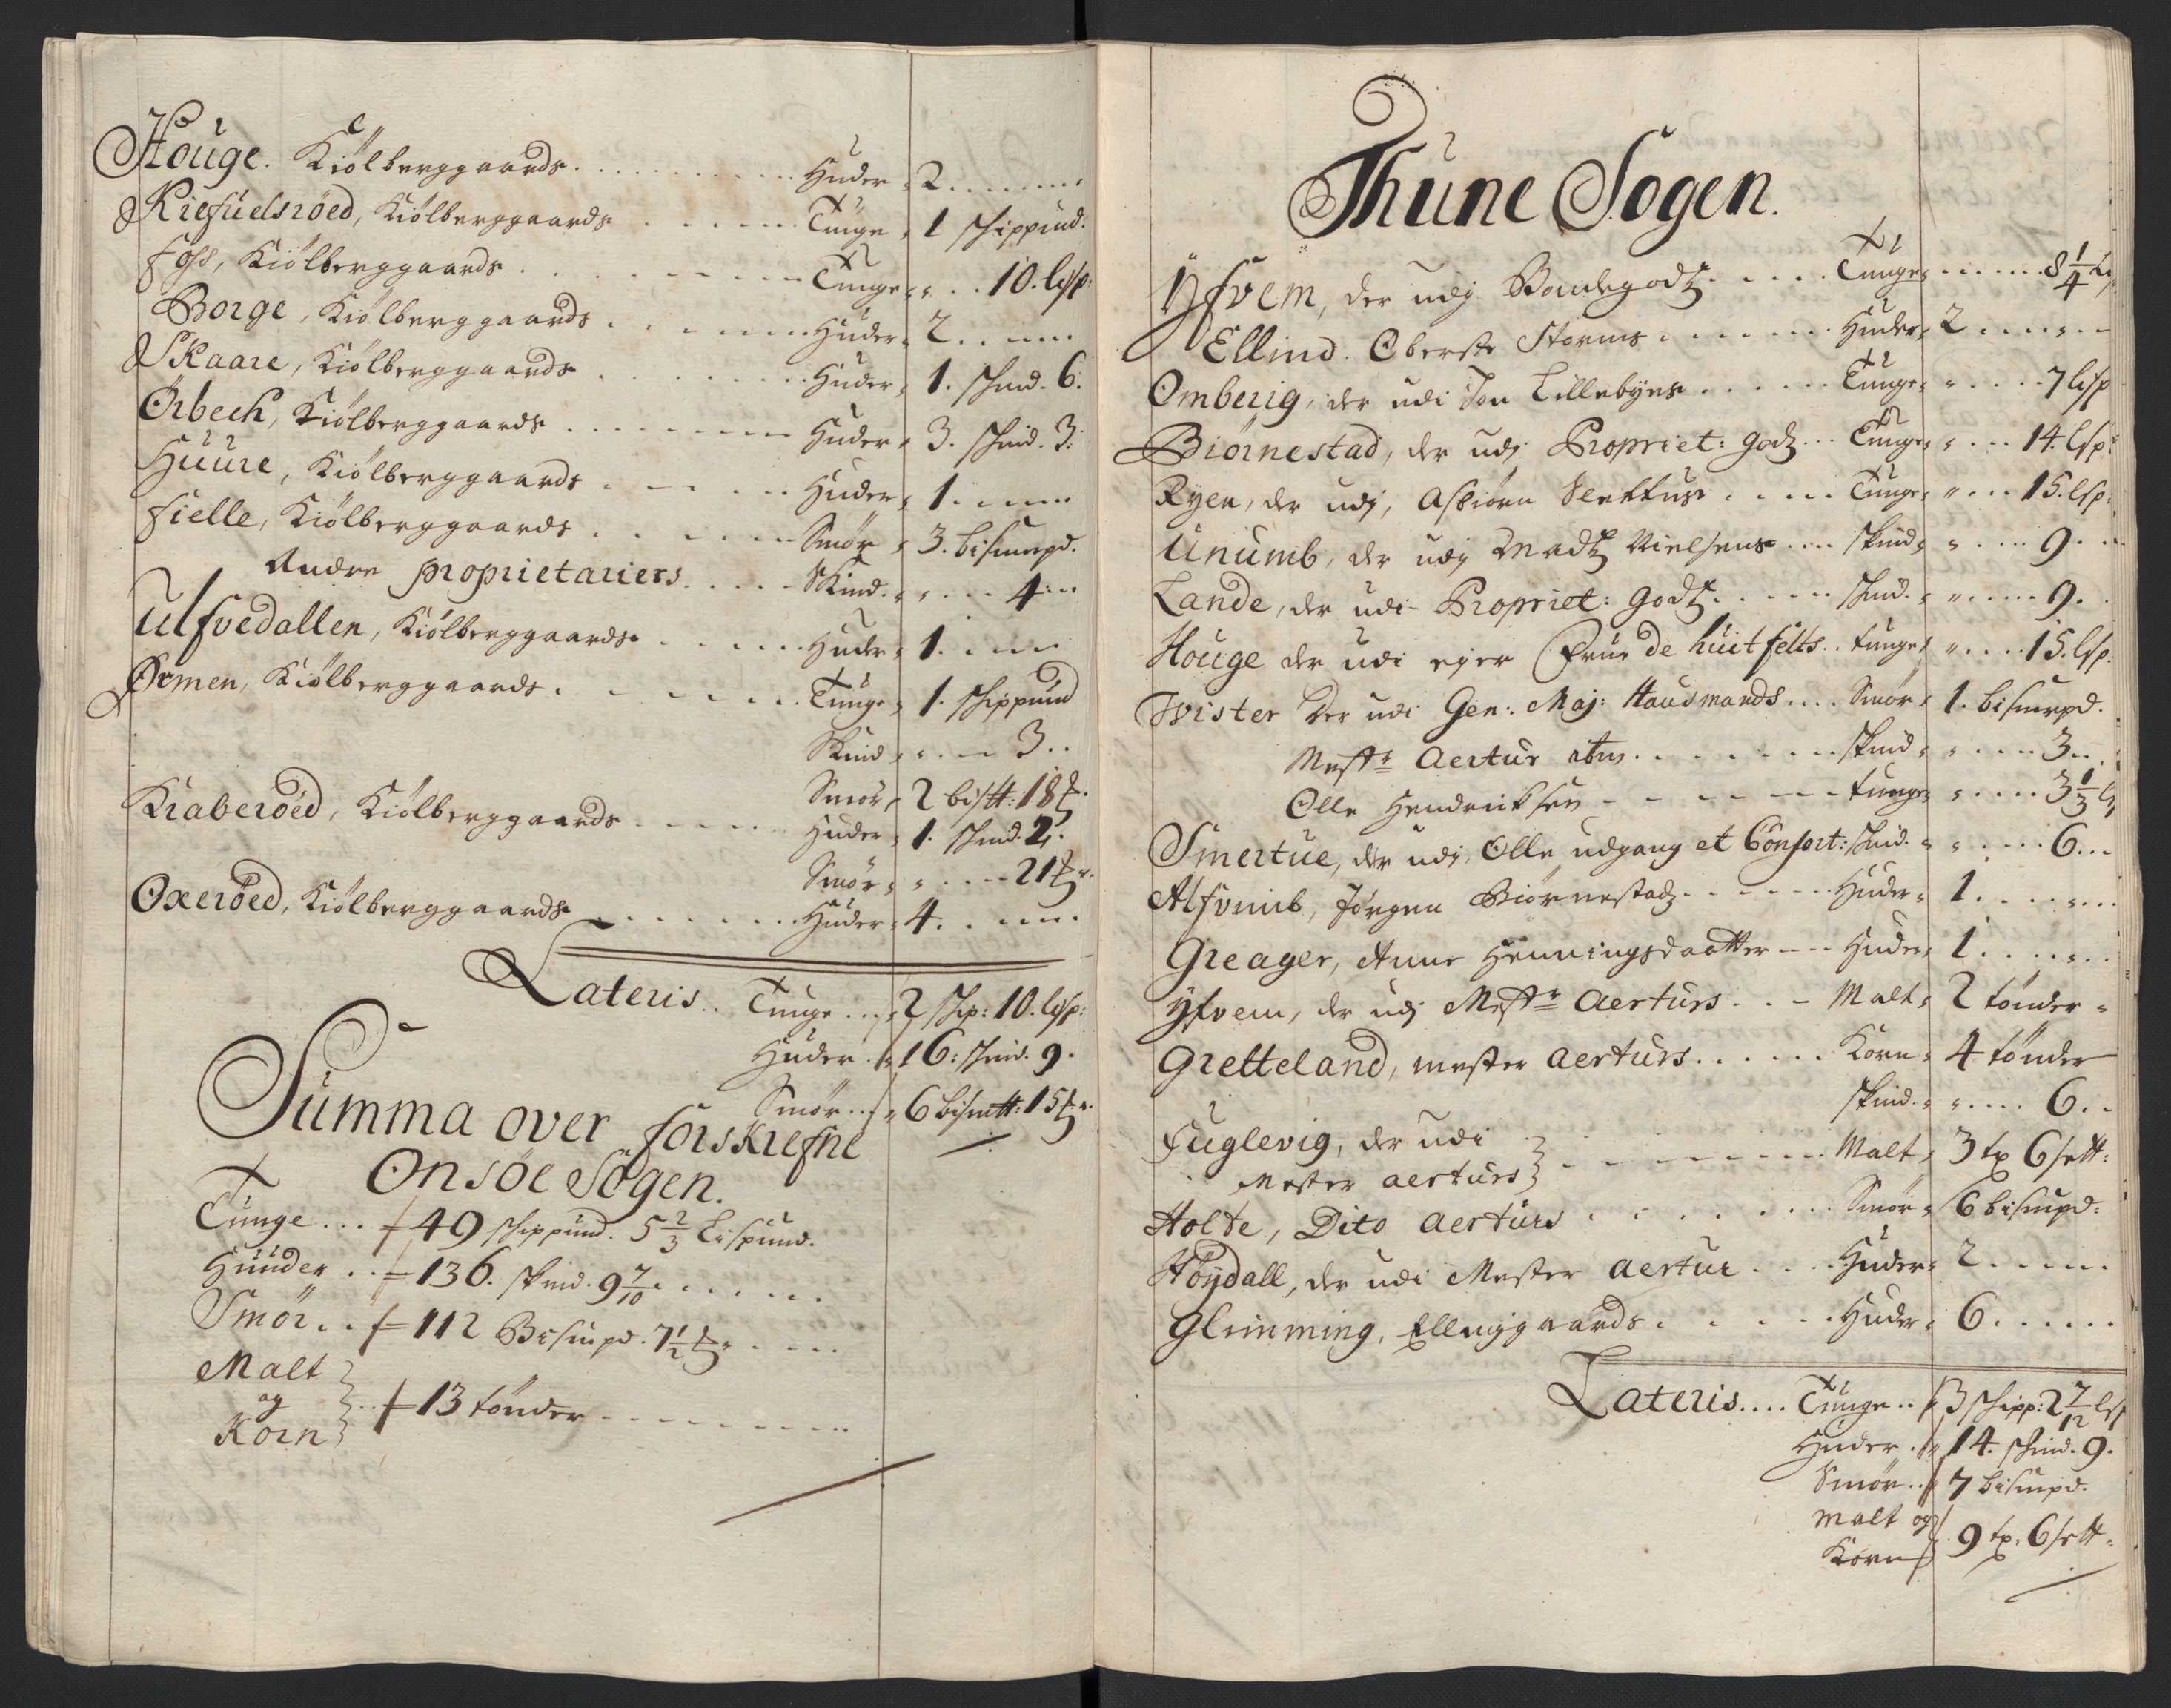 Houge. Kiølberggaards. . . . . . Huder = 2. . . . .
Riefuelsröed, Kiølberggaards . . . . Tunge = 1 schippund.
Foss, Kiølberggaards . . . . Tunge = " . . 10. lisp:
Borge, Kiølberggaards . . . . Huder = 2. . . . .
Skaare, Kiølberggaards . . . . Huder = 1. schind. 6.
Örbech, Kiølberggaards . . . . Huder = 3. schind. 3.
Huure, Kiølberggaards . . . . Huder = 1. . . . .
Fielle, Kiølberggaards . . . . Smør = 3. bismerpd.
Andre proprietariers . . . . Skind. = " . . . 4. . .
Ulfvedallen, Kiølberggaards . . . . Huder = 1. . . .
Ørmen, Kiølberggaards . . . . Tunge = 1. schippund
Skind = " . . 3. .
Kraberöed, Kiølberggaards . . . . Smør = 2 bis℔: 18 ℔.
Huder = 1. schind. 2.
Smør = " . . . 21 ℔r.
Oxeröed, Kiølberggaards . . . . Huder = 4. . . .
Lateris . . Tunge . . . 2 schip: 10. lisp:
Huder . 16: schind. 9.
Smør . . 6 bism℔: 15 ℔r.
Summa over forskrefne
Onsöe Sogen.
Tunge . . . 49 schippund. 5 2/3 Lispund.
Hüüder . . 136. skind. 9 7/10 . . . .
Smör . . 112 Bismpd. 7 1/2 ℔ . . . .
Malt
og
Korn } . . 13 tönder . . . .
Thune Sogen.
Yfvem, der udj Bondegodtz . . . . Tunge = . . . . 8 1/4 Lis
Ellind. Oberste Storms . . . . Huder = 2 . . . .
Omberig, der udi Jon Lillebyes . . . . Tunge = " . . . 7 lisp
Biörnestad, der udj Propriet: godtz . . . Tunge = " . . . 14. lsp:
Ryen, der udj, Asbiörn . . . . Tunge = " . . . 15. lsp:
Unumb, der udj Madtz Nielsens . . . . skind = " . . . 9. . .
Lande, der udi Propriet: godtz . . . . schind. = " . . . 9. .
Houge der udi ejer Frue de huitfelts . . tunge = " . . . 15. lsp:
Wister der udi Gen: Maj: Hausmands . . . . Smør = 1. bismerpd.
Mestr Aertur . . . . skind = " . . . 3. .
Olle Hendricksen . . . . tunge = " . . . 3 1/3 ls
Smertue, der udj, Olle udgang et Consort: schind. = " . . . 6. . .
Alfvimb, Jørgen Biørnestadtz . . . . Huder = 1. . . . .
Greager, Anne Henningsdaatter . . . Huder = 1. . . . .
Yfvem, der udj Mestr Aerturs . . . Malt = 2 tönder =
Gretteland, mester aerturs . . . . Korn = 4 tönder
skind. = " . . . 6. .
Fuglevig, der udi
Mester aerturs } . . . . Malt = 3 tr 6 sett:
Holte, Dito Aerturs . . . . Smør = 6 bismpd:
Höydall, der udi Mester aertur . . . . Huder = 2. . . . .
Glimming, Ellinggaards . . . . Huder = 6. . . . .
Lateris . . . . Tunge . . 3 schipp: 2 7/12 lsp
Huder . 14. schind. 9.
Smør . . 7 bismpd.
malt og
Korn } 9 tr. 6 sett =